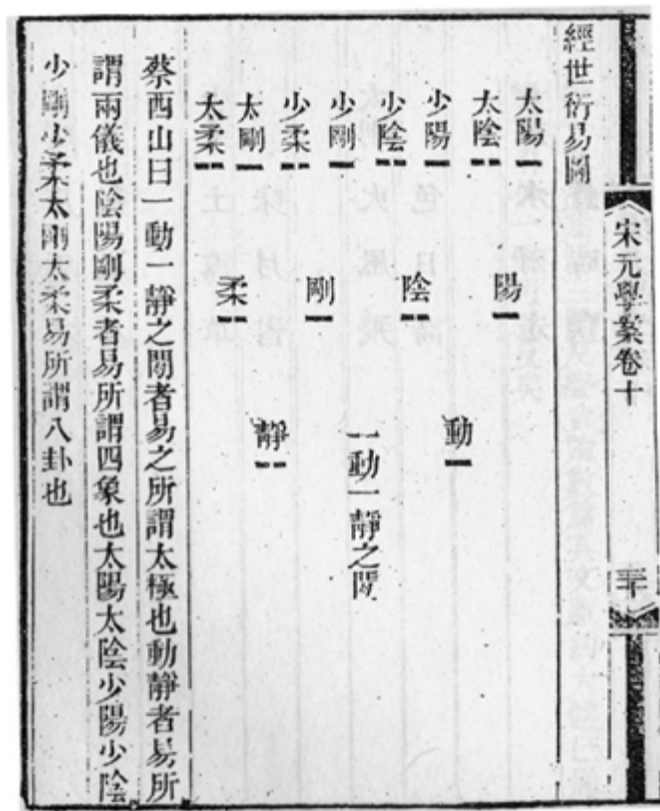 宋元學案卷十
經世衍易圖
太陽
太陰
少陽
少陰
少剛
少柔
太剛
太柔
陽
陰
剛
柔
動
一動一靜之閒
靜
蔡西山曰一動一靜之閒者易之所謂太極也動靜者易所
謂兩儀也陰陽剛柔者易所謂四象也太陽太陰少陽少陰
少剛少柔太剛太柔易所謂八卦也